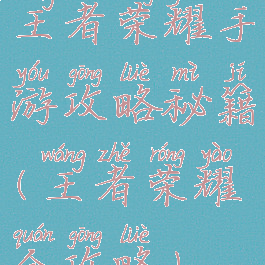 王者荣耀手
yóu gōng lüè mì jí
游攻略秘籍
wáng zhě róng yào
(王者荣耀
quán gōng lüè
全攻略)